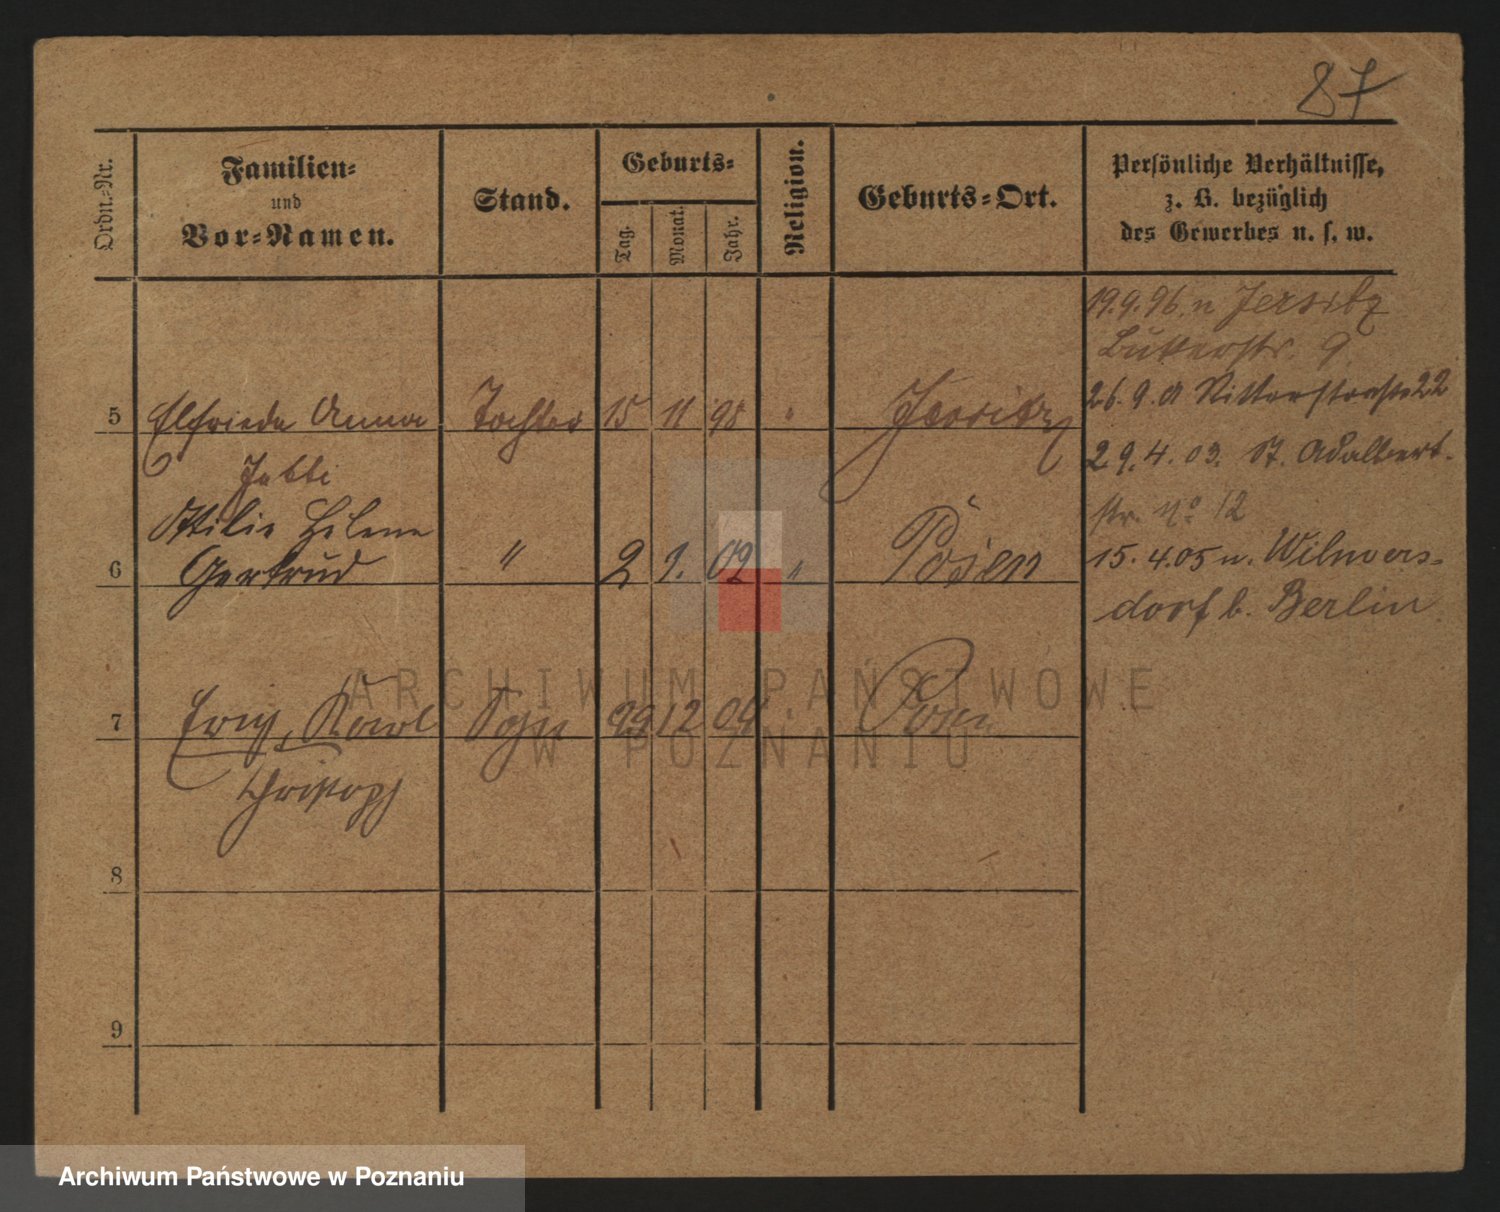 87
Ordn.-Nr.
Familien-
und
Vor-Namen.
Stand.
Geburts-
Tag.
Monat.
Jahr.
Religion.
Geburts-Ort.
Persönliche Verhältnisse,
z. B. bezüglich
des Gewerbes u. s. w.
19.9.96. n Jersitz
Bukerstr. 9
5 Elfriede Anna Tochter 15 11 98 " Jersitz
26.9.01 Ritterstraße 22
29.4.03. St. Adalbert-
str. No 12
Ottilie Helene
Gertrud
6 " 2 9. 02 " Posen
15.4.05 n. Wilmers-
dorf b. Berlin
7 Erich, Karl Sohn 29 12 04 " Posen
Christoph
8
9
ARCHIWUM PAŃSTWOWE
W POZNANIU
Archiwum Państwowe w Poznaniu